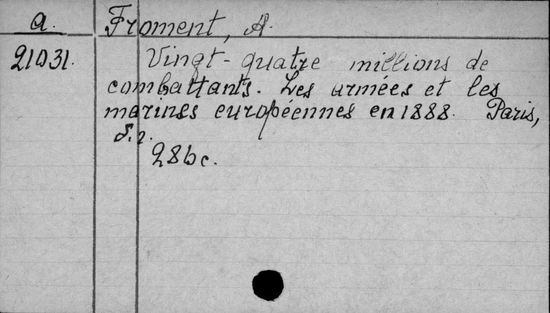 a. Froment, A.
21031. Vingt-quatre millions de
combattants. Les armées et les
marines européennes en 1888. Paris,
s.a.
28bc.